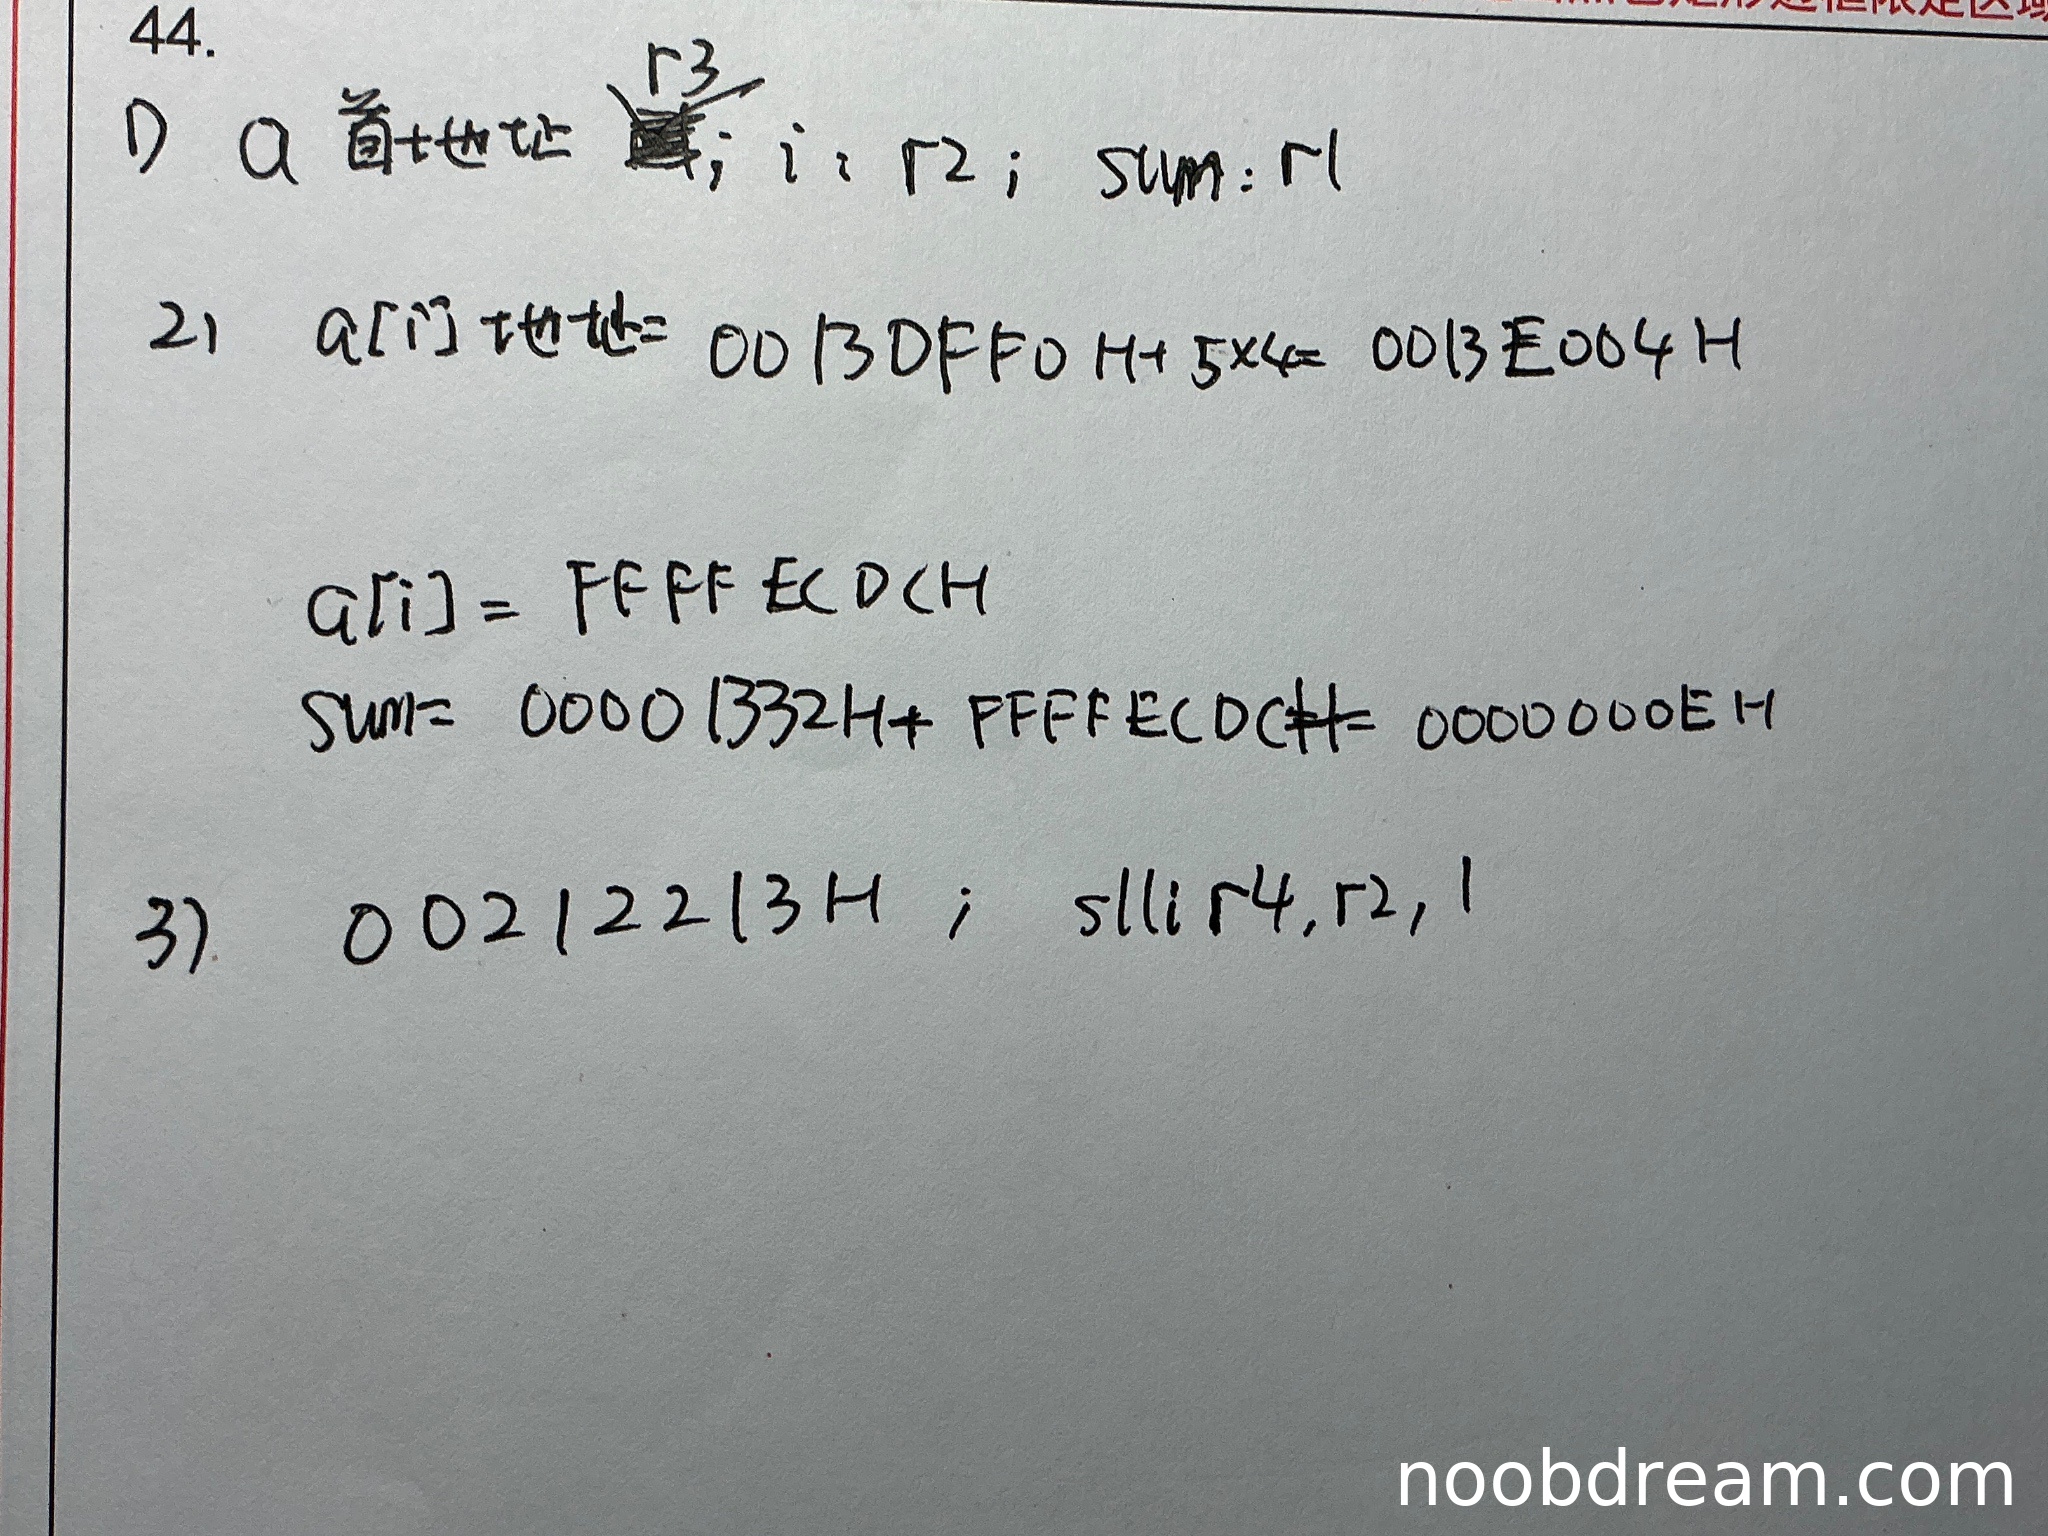 44.
1) a 首地址 r3; i: r2; sum: r1
2) a[i] 地址= 0013DFF0H+5×4= 0013E004H
a[i] = FFFFECDCH
sum= 00001332H+ FFFFECDCH= 0000000EH
3) 00212213H ; slli r4,r2,1
noobdream.com